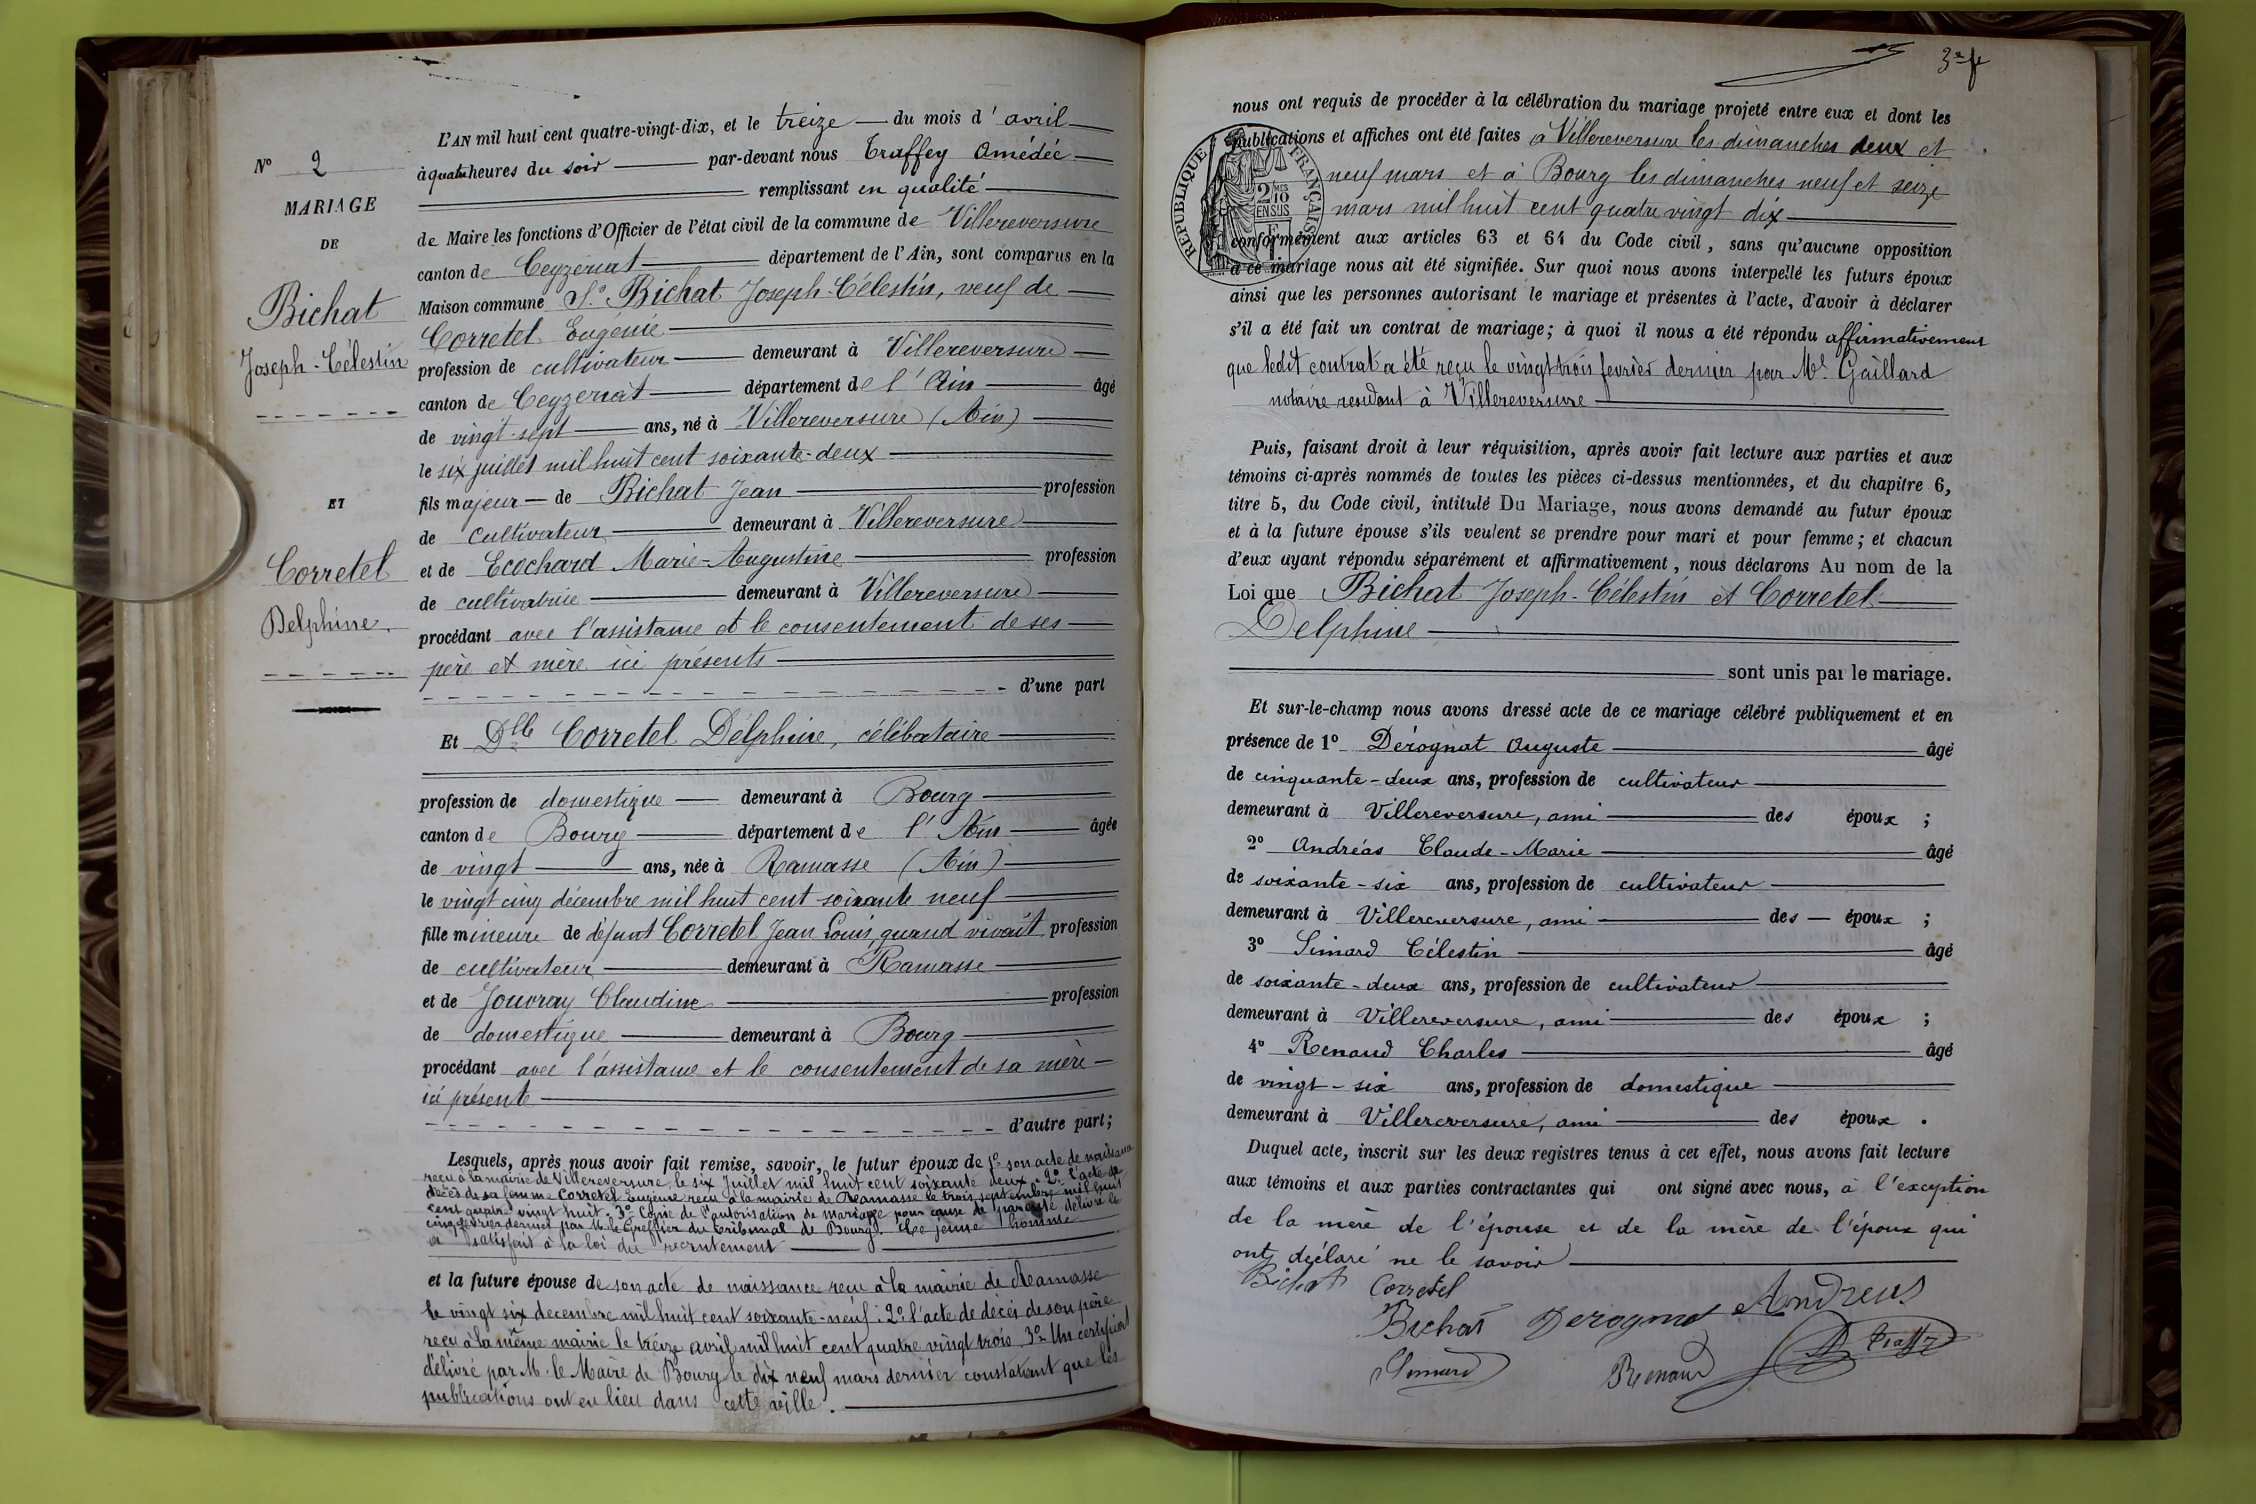 N° 2
MARIAGE
DE
Bichat
Joseph-Célestin
ET
Corretel
Delphine
L'AN mil huit cent quatre-vingt-dix, et le treize du mois d'avril
à quatre heures du soir par-devant nous Traffey Amédée
remplissant en qualité
de Maire les fonctions d'Officier de l'état civil de la commune de Villereversure
canton de Ceyzeriat département de l'Ain, sont comparus en la
Maison commune Sr. Bichat Joseph-Célestin, veuf de
Corretel Eugénie
profession de cultivateur demeurant à Villereversure
canton de Ceyzeriat département de l'Ain âgé
de vingt-sept ans, né à Villereversure (Ain)
le six juillet mil huit cent soixante-deux
fils majeur de Bichat Jean profession
de cultivateur demeurant à Villereversure
et de Ecochard Marie-Augustine profession
de cultivatrice demeurant à Villereversure
procédant avec l'assistance et le consentement de ses
père et mère ici présents
d'une part
Et Dlle Corretel Delphine, célibataire
profession de domestique demeurant à Bourg
canton de Bourg département de l'Ain âgée
de vingt ans, née à Ramasse (Ain)
le vingt cinq décembre mil huit cent soixante neuf
fille mineure de défunt Corretel Jean Louis, quand vivait profession
de cultivateur demeurant à Ramasse
et de Jouvray Claudine profession
de domestique demeurant à Bourg
procédant avec l'assistance et le consentement de sa mère
ici présente
d'autre part;
Lesquels, après nous avoir fait remise, savoir, le futur époux de 1° son acte de naissance
reçu à la mairie de Villereversure, le six Juillet mil huit cent soixante deux. 2° l'acte de
décès de sa femme Corretel Eugénie reçu à la mairie de Ramasse le trois septembre mil huit
cent quatre vingt huit. 3° Copie de l'autorisation de mariage pour cause de parenté délivré le
cinq février dernier par M. le Greffier du tribunal de Bourg. Le jeune homme
a satisfait à la loi du recrutement
et la future épouse de son acte de naissance reçu à la mairie de Ramasse
le vingt six decembre mil huit cent soixante-neuf: 2° l'acte de décès de son père
reçu à la même mairie le treize avril mil huit cent quatre vingt trois. 3° Un certificat
délivré par M. le Maire de Bourg le dix neuf mars dernier constatant que les
publications ont eu lieu dans cette ville.
3e f
nous ont requis de procéder à la célébration du mariage projeté entre eux et dont les
publications et affiches ont été faites à Villereversure les dimanches deux et
neuf mars et à Bourg les dimanches neuf et seize
mars mil huit cent quatre vingt dix
RÉPUBLIQUE FRANÇAISE
2/10 MES
EN SUS
conformément aux articles 63 et 64 du Code civil, sans qu'aucune opposition
à ce mariage nous ait été signifiée. Sur quoi nous avons interpellé les futurs époux
ainsi que les personnes autorisant le mariage et présentes à l'acte, d'avoir à déclarer
s'il a été fait un contrat de mariage; à quoi il nous a été répondu affirmativement
que ledit contrat a été reçu le vingt trois fevrier dernier par Me. Gaillard
notaire residant à Villereversure
Puis, faisant droit à leur réquisition, après avoir fait lecture aux parties et aux
témoins ci-après nommés de toutes les pièces ci-dessus mentionnées, et du chapitre 6,
titre 5, du Code civil, intitulé Du Mariage, nous avons demandé au futur époux
et à la future épouse s'ils veulent se prendre pour mari et pour femme; et chacun
d'eux ayant répondu séparément et affirmativement, nous déclarons Au nom de la
Loi que Bichat Joseph-Célestin et Corretel
Delphine
sont unis par le mariage.
Et sur-le-champ nous avons dressé acte de ce mariage célébré publiquement et en
présence de 1° Dérognat Auguste âgé
de cinquante-deux ans, profession de cultivateur
demeurant à Villereversure, ami des époux;
2° Andréas Claude-Marie âgé
de soixante-six ans, profession de cultivateur
demeurant à Villereversure, ami des époux;
3° Simard Célestin âgé
de soixante-deux ans, profession de cultivateur
demeurant à Villereversure, ami des époux;
4° Renaud Charles âgé
de vingt-six ans, profession de domestique
demeurant à Villereversure, ami des époux.
Duquel acte, inscrit sur les deux registres tenus à cet effet, nous avons fait lecture
aux témoins et aux parties contractantes qui ont signé avec nous, à l'exception
de la mère de l'épouse et de la mère de l'époux qui
ont déclaré ne le savoir
Bichat Corretel
Bichat Derognat Andreas
Simard Renaud A. Traffey